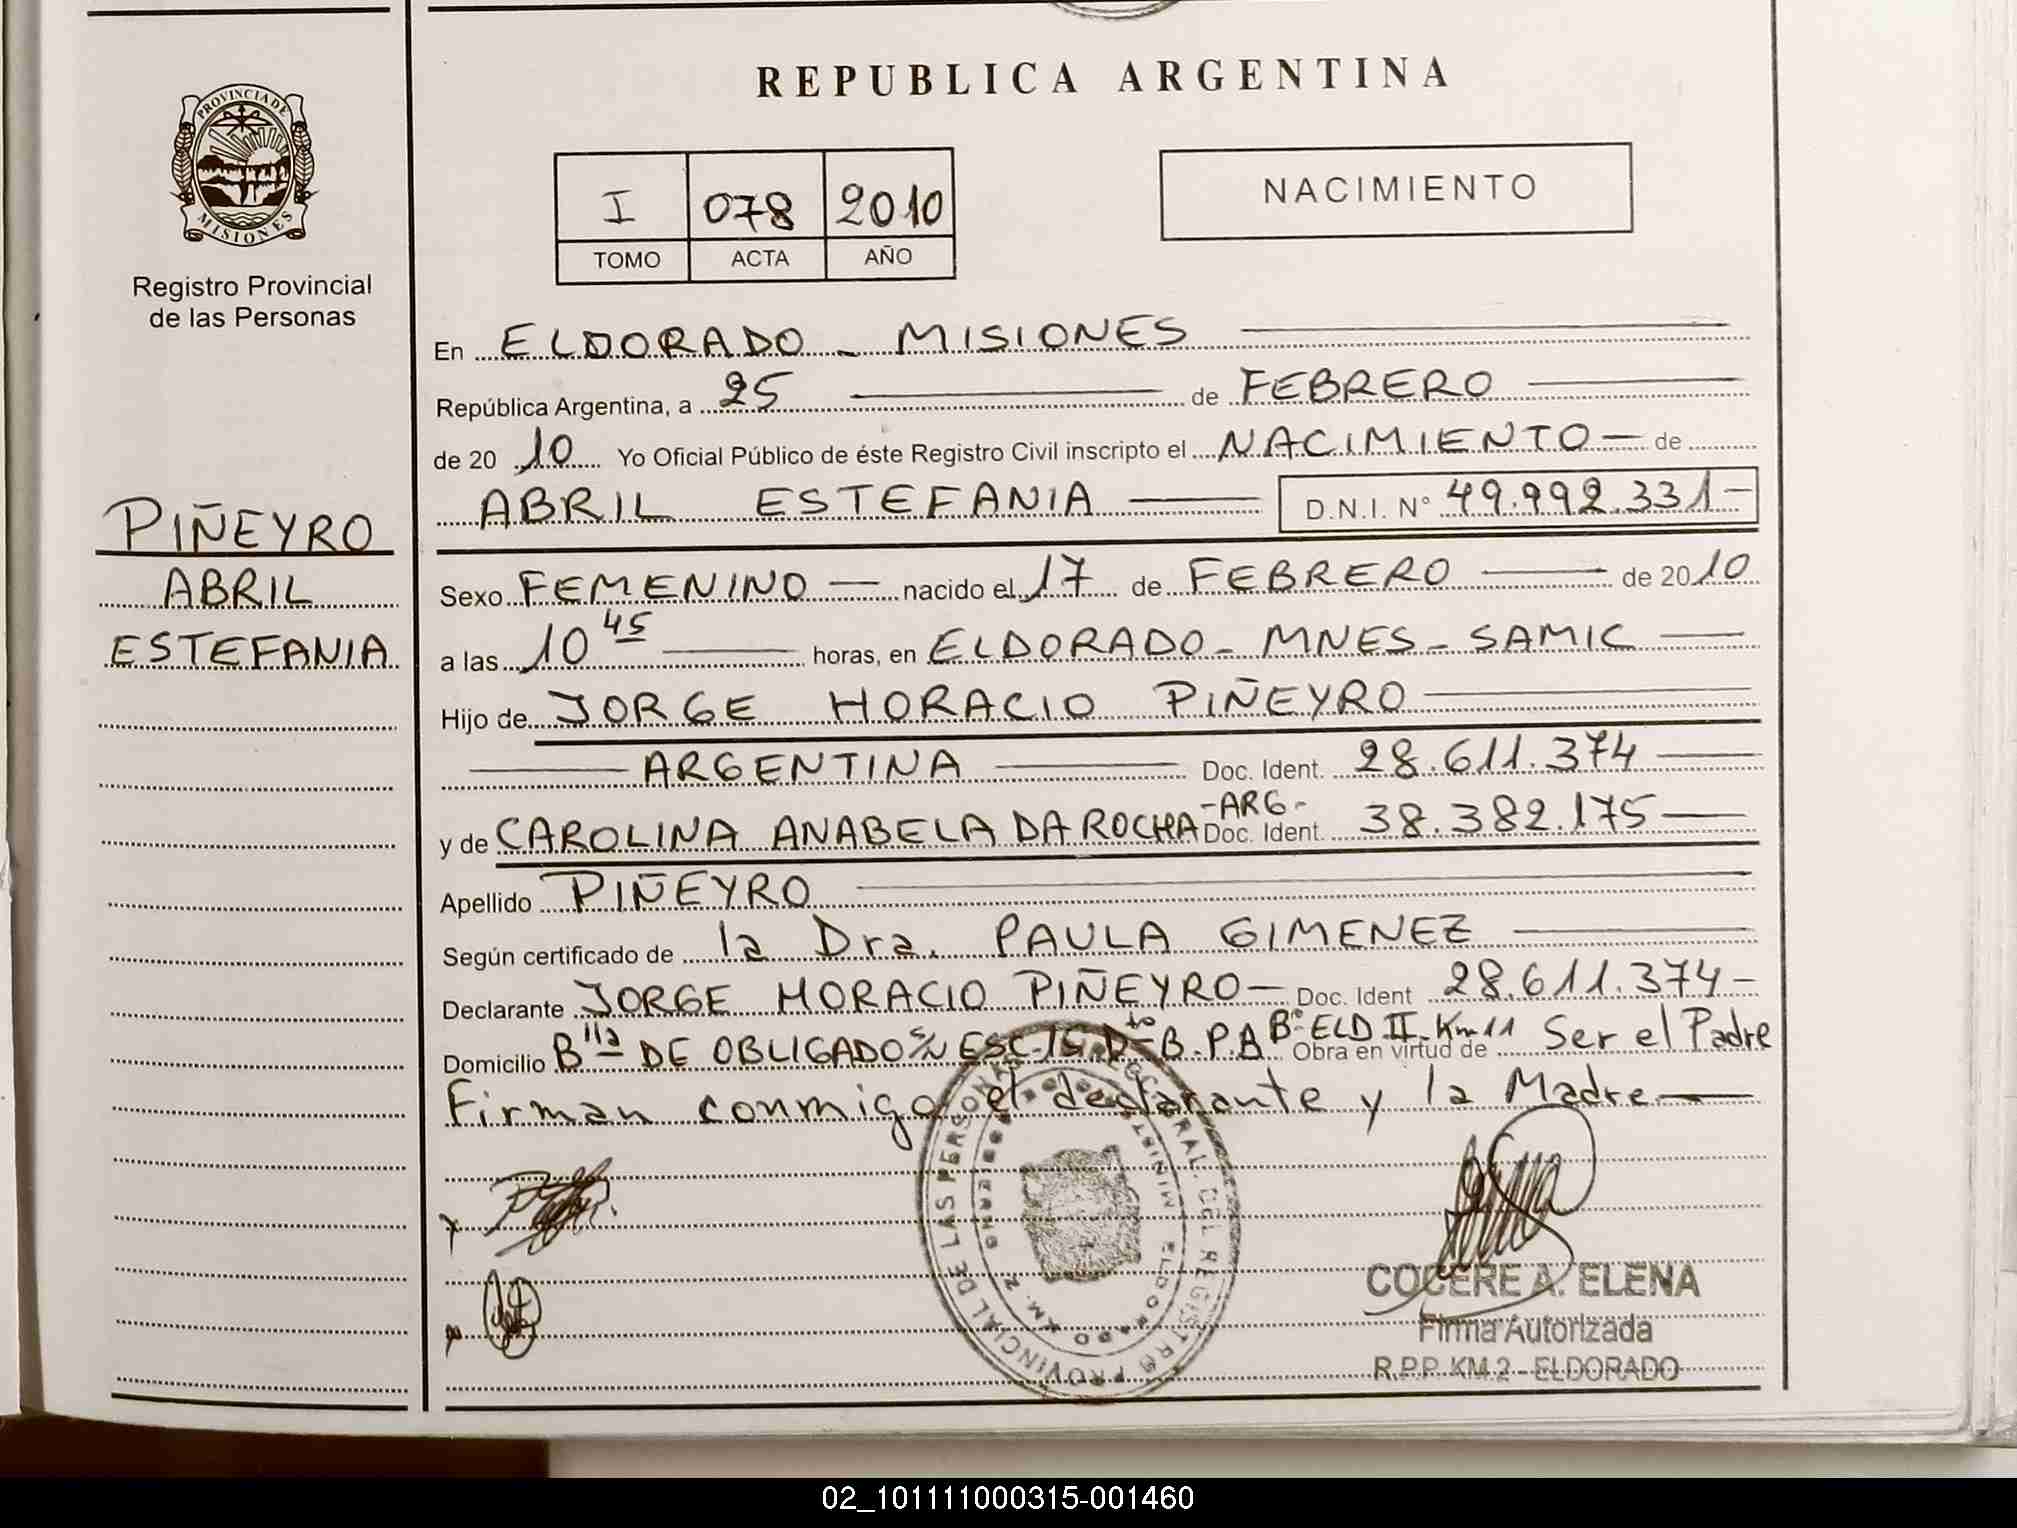 PROVINCIA DE
MISIONES
Registro Provincial
de las Personas
PIÑEYRO
ABRIL
ESTEFANIA
REPUBLICA ARGENTINA
I 078 2010
TOMO ACTA AÑO
NACIMIENTO
En ELDORADO - MISIONES
República Argentina, a 25 de FEBRERO
de 20 10 Yo Oficial Público de éste Registro Civil inscripto el NACIMIENTO - de
ABRIL ESTEFANIA D.N.I. N° 49.992.331-
Sexo FEMENINO — nacido el 17 de FEBRERO de 20 10
a las 10 45 horas, en ELDORADO - MNES - SAMIC
Hijo de JORGE HORACIO PIÑEYRO
ARGENTINA Doc. Ident. 28.611.374
y de CAROLINA ANABELA DA ROCHA -ARG- Doc. Ident. 38.382.175
Apellido PIÑEYRO
Según certificado de la Dra. PAULA GIMENEZ
Declarante JORGE HORACIO PIÑEYRO - Doc. Ident 28.611.374-
Domicilio Blla DE OBLIGADO S/N ESC. 15 Dto B.P.A B° ELD II Km 11 Obra en virtud de Ser el Padre
Firman conmigo el declarante y la Madre
REGISTRO PROVINCIAL DE LAS PERSONAS
ELDORADO KM. 2
COCERE A. ELENA
Firma Autorizada
R.P.P. KM.2 - ELDORADO
02_101111000315-001460